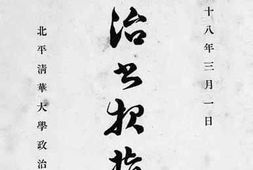 十八年三月一日
治書報指
北平清華大學政治